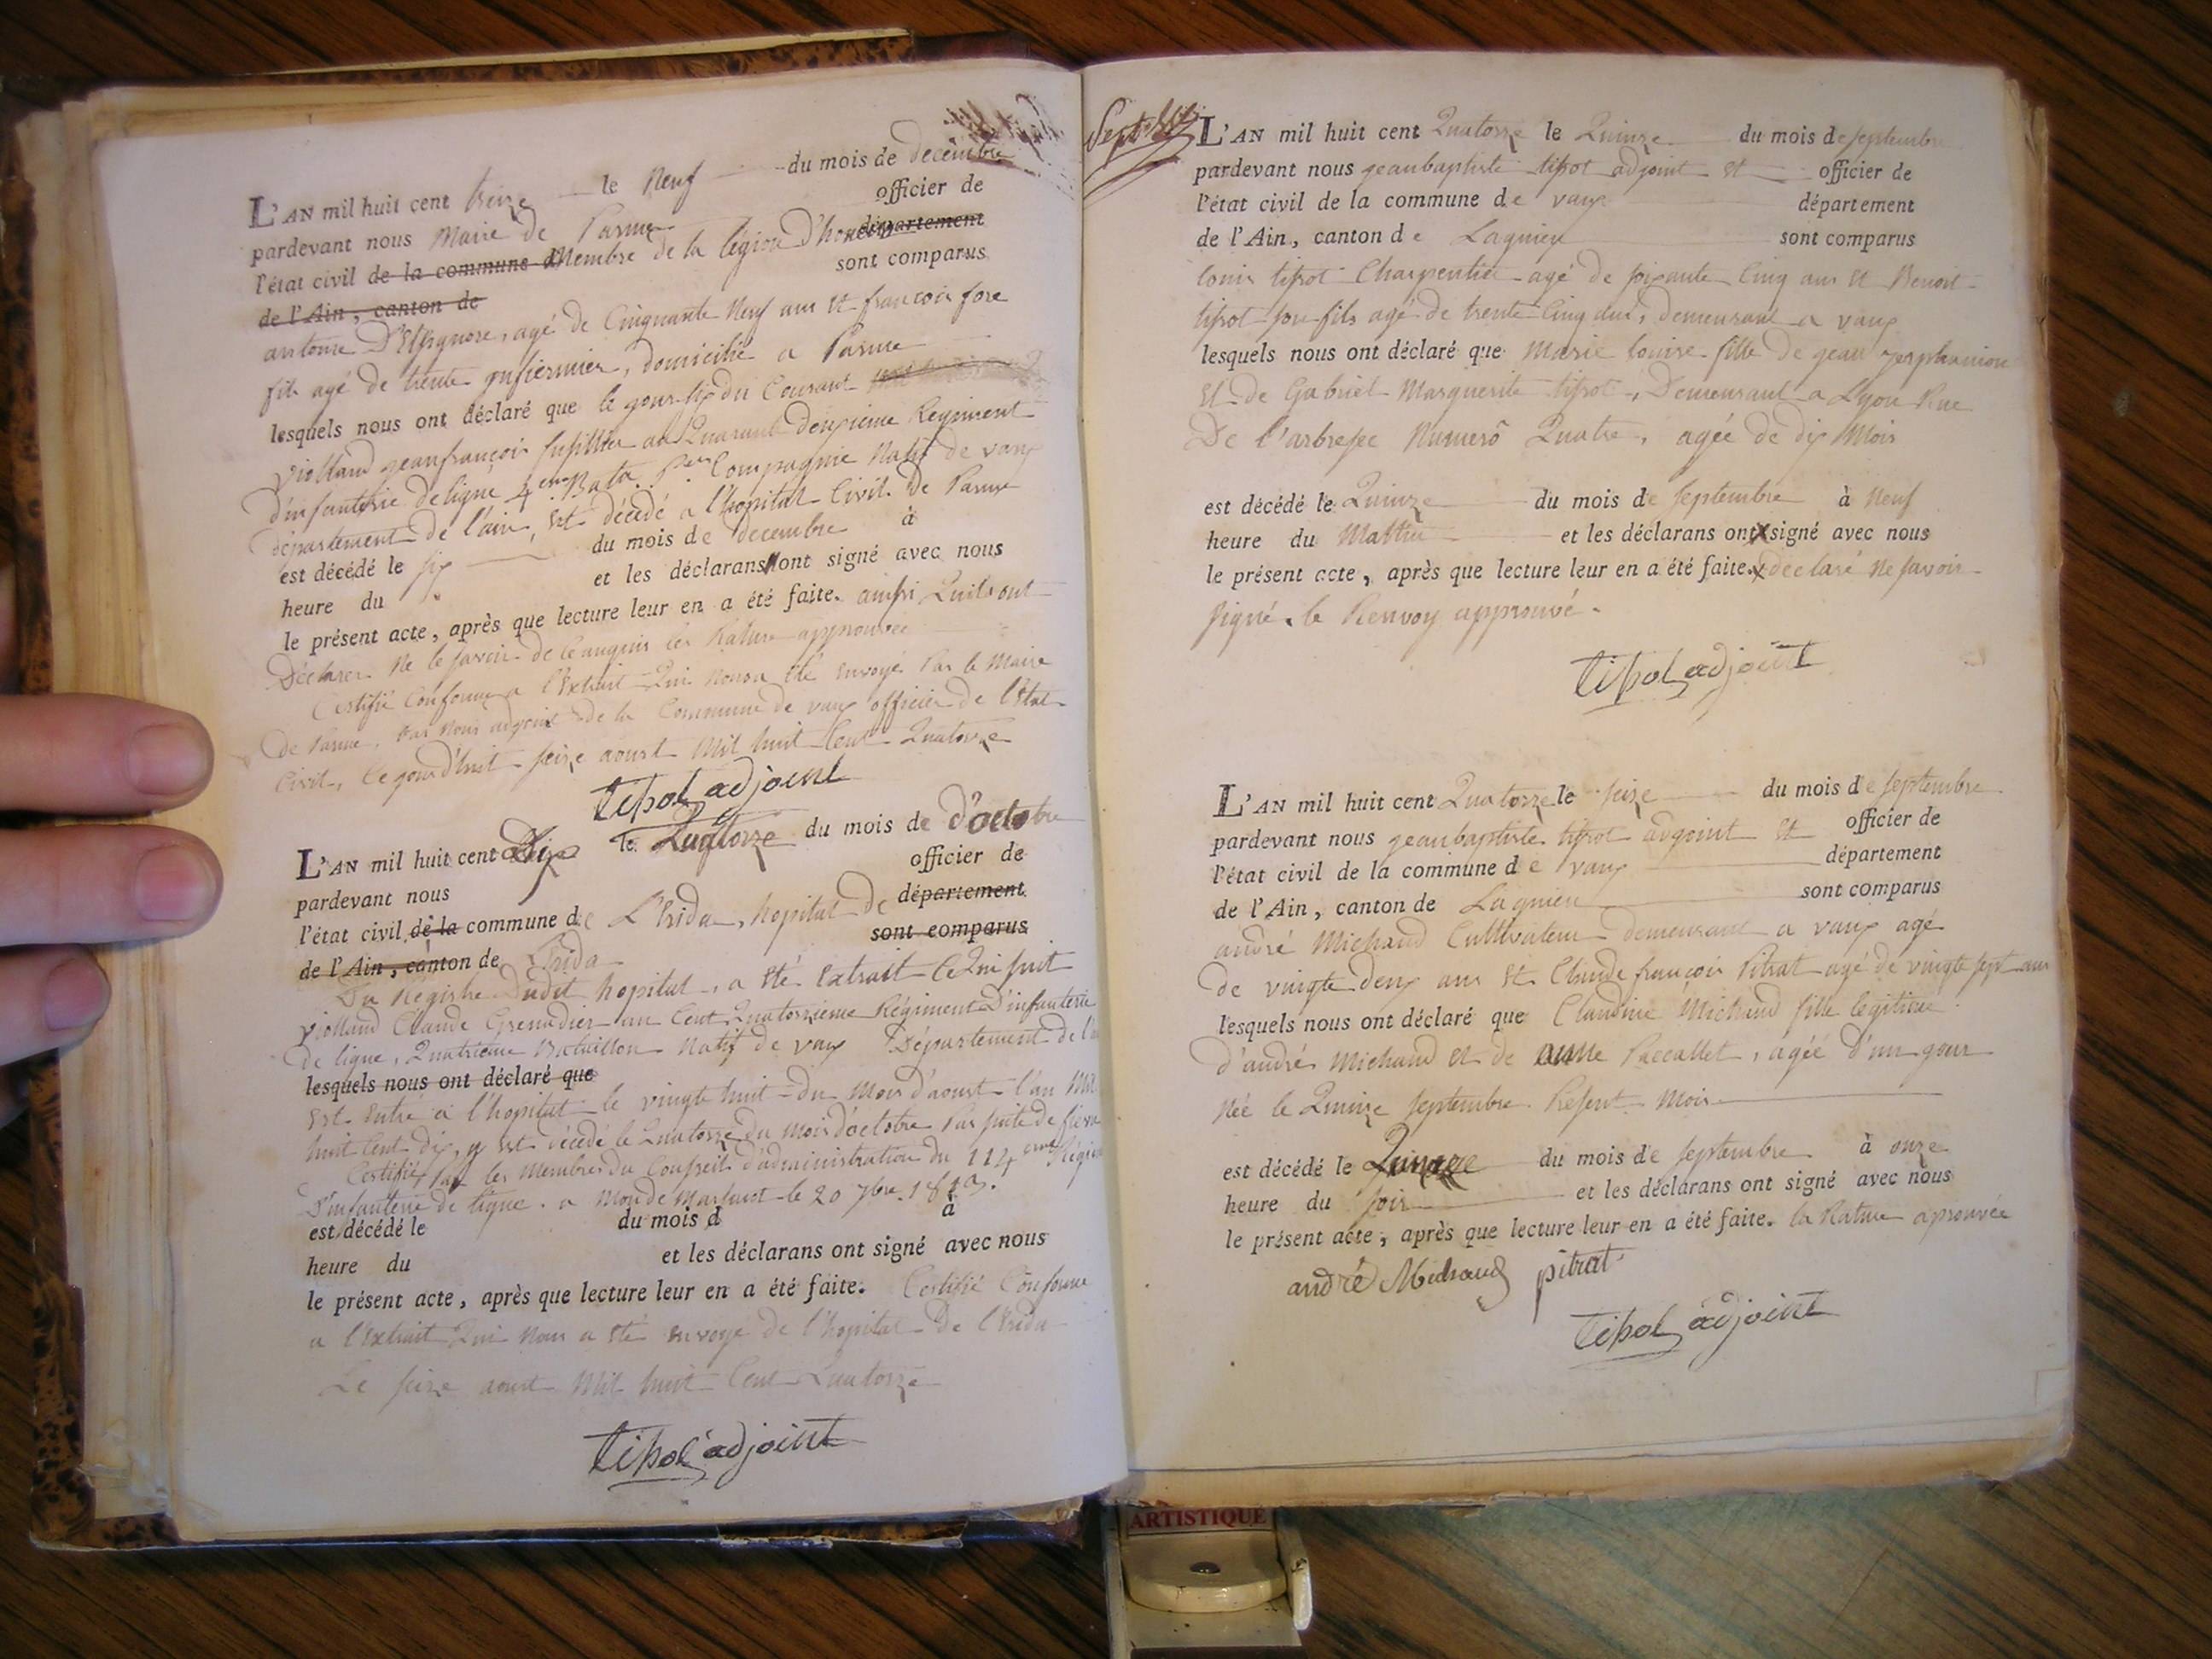 L'AN mil huit cent treize le Neuf du mois de decembre
pardevant nous Maire de Parme officier de
l'état civil de la commune d Membre de la légion d'honeur département
de l'Ain, canton de sont comparus
antoine D'Espagnore, agé de Cinquante Neuf ans et francois fore
fils agé de trente infiermier, domicilié a Parme
lesquels nous ont déclaré que le gour six du Courant
violland jeanfrançois fusillier au Quarante deuxieme Regiment
d'infanterie de ligne 4eme Batn. Compagnie Natif de vaux
département de l'ain, Est décédé a l'hopital Civil de Parme
est décédé le six du mois de decembre à
heure du et les déclarans ont signé avec nous
le présent acte, après que lecture leur en a été faite. ainsi Quils ont
Déclarer Ne le savoir de ce enquis les Rature approuvée
Certifié Conforme a l'Extrait Qui nous a été envoyé Par le Maire
de Parme, Par Nous adjoint de la Commune de vaux officier de l'état
Civil, le gourd'huit seize aoust Mil huit Cent Quatorze
tissot adjoint
L'AN mil huit cent Dix le Quatorze du mois de d'octobre
pardevant nous officier de
l'état civil de la commune de L'Erida, hopital de département
de l'Ain, canton de Erida sont comparus
Du Régistre dudit hopital, a été Extrait Ce Qui suit
violland Claude Grenadier au Cent Quatorzieme Régiment D'infanterie
de ligne, Quatrieme Bataillon Natif de vaux Département de l'a
lesquels nous ont déclaré que
Est Entré a l'hopital le vingte huit du Mois d'aoust l'an Mil
huit Cent dix, y est décédé le Quatorze du mois d'octobre Par suite de fievre
Certifié, Par les Membres du Conseil d'administration du 114eme Régim
D'infanterie de ligne. a Mon de Marsant le 20 7bre. 1813.
est décédé le du mois d à
heure du et les déclarans ont signé avec nous
le présent acte, après que lecture leur en a été faite. Certifié Conforme
a l'Extrait Qui Nous a été envoyé de l'hopital De l'Erida
Le seize aoust Mil huit Cent Quatorze
tissot adjoint
Septbre
L'AN mil huit cent Quatorze le Quinze du mois de septembre
pardevant nous geanbaptiste tissot adjoint et officier de
l'état civil de la commune de vaux département
de l'Ain, canton de Lagnieu sont comparus
louis tissot Charpentier agé de soixante Cinq ans et Benoit
tissot son fils agé de trente Cinq ans, Demeurant a vaux
lesquels nous ont déclaré que Marie louise fille de gean
Et de Gabriel Marguerite tissot, Demeurant a Lyon Rue
De l'arbresec Numerô Quatre, agée de dix Mois
est décédé le Quinze du mois de septembre à Neuf
heure du Mattin et les déclarans ont x signé avec nous
le présent acte, après que lecture leur en a été faite. x declaré ne savoir
signé. le Renvoy approuvé.
tissot adjoint
L'AN mil huit cent Quatorze le seize du mois de septembre
pardevant nous geanbaptiste tissot adgoint et officier de
l'état civil de la commune de vaux département
de l'Ain, canton de Lagnieu sont comparus
andré Michaud Cultivateur demeurant a vaux agé
de vingte deux ans et Claude françois Pitrat agé de vingte sept ans
lesquels nous ont déclaré que Claudine Michaud fille legitime
d'andré Michaud et de anne Paccallet, agée d'un gour
Née le Quinze septembre Present Mois
est décédé le Quinze du mois de septembre à onze
heure du soir et les déclarans ont signé avec nous
le présent acte, après que lecture leur en a été faite. la Rature aprouvée
andré Michaud pitrat
tissot adjoint
ARTISTIQUE